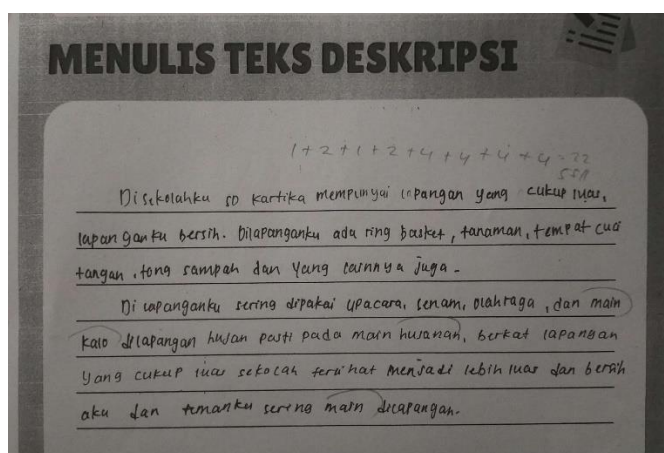 MENULIS TEKS DESKRIPSI
1+2+1+2+4+4+4+4=22
Disekolahku SD Kartika mempunyai lapangan yang cukup luas,
lapanganku bersih. Dilapanganku ada ring basket, tanaman, tempat cuci
tangan, tong sampah dan yang lainnya juga.
Di lapanganku sering dipakai upacara, senam, olahraga, dan main
kalo dilapangan hujan pasti pada main hujanan, berkat lapangan
yang cukup luas sekolah terlihat menjadi lebih luas dan bersih
aku dan temanku sering main dilapangan.